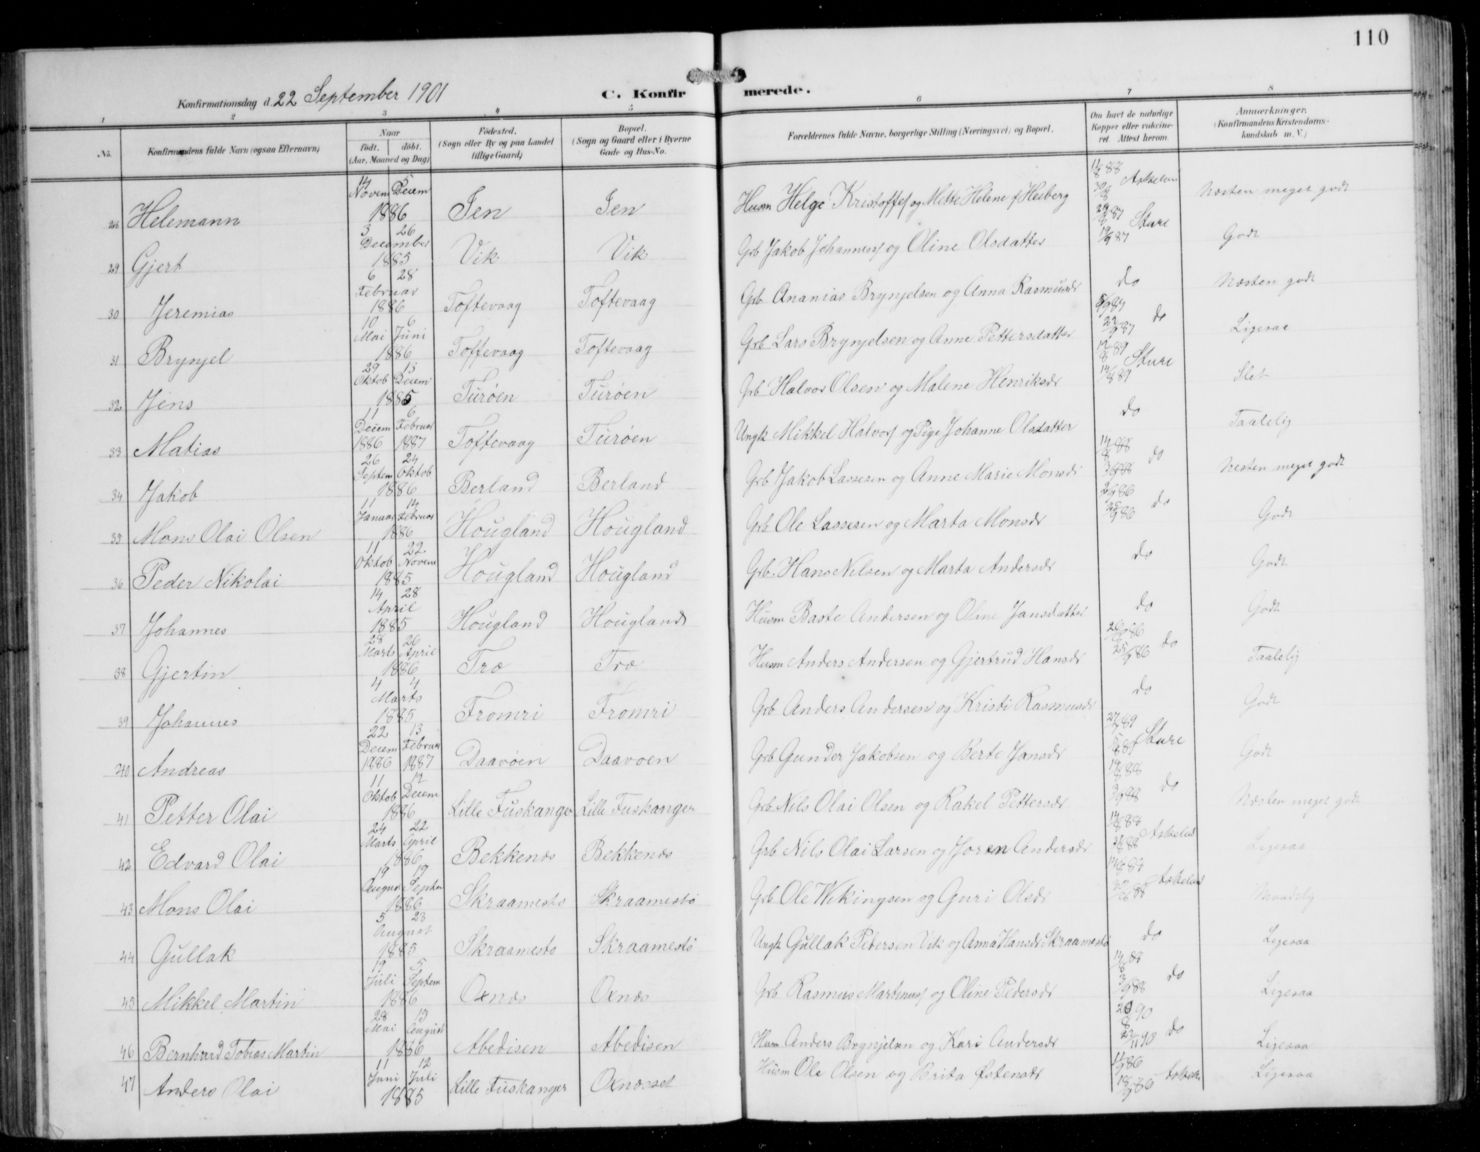 110
Konfirmationsdag d. 22 September 1901
C. Konfirmerede.
1 2 3 4 5 6 7 8
No. Konfirmandens fulde Navn (ogsaa Efternavn) Naar født. døbt. (Aar, Maaned og Dag) Fødested. (Sogn eller By og paa Landet tillige Gaard) Bopæl. (Sogn og Gaard eller i Byerne Gade og Hus-No. Forældrenes fulde Navne, borgerlige Stilling (Næringsvei) og Bopæl. Om havt de naturlige Kopper eller vaccineret. Attest herom. Anmærkninger. (Konfirmandens Kristendomskundskab m. V.)
Helemann 14 Novem 5 Decem 1886 Husm Helge og Mette Helene Næsten meget godt
29 Gjert 3 26 December 1885 Vik Vik Grb Jakob og Oline Olsdatter Sture Godt
30 Jeremias 6 28 Februar 1886 Toftevaag Toftevaag Grb Ananias Brynjelsen og Anna Rasmusdr do Næsten godt
31 Brynjel 10 Mai 6 Juni 1886 Toftevaag Toftevaag Grb Lars Brynjelsen og Anne Pettersdatter do Ligesaa
32 Jens 29 Oktob 13 Decem 1885 Turøen Turøen Grb Halvor Olsen og Malene Henriksdr Sture Slet
33 Matias 11 Decem 1886 6 Februar 1887 Toftevaag Turøen Ungk Mikkel og Pige Johanne Olsdatter do Taalelig
34 Jakob 26 Septem 24 Oktob 1886 Berland Berland Grb Jakob Lassesen og Anne Marie Monsdr do Næsten meget godt
35 Mons Olai Olsen 11 Januar 14 Februar 1886 Hougland Hougland Grb Ole Lassesen og Marta Monsdr do Godt
36 Peder Nikolai 11 Oktob 22 Novem 1885 Hougland Hougland Grb Hans Nilsen og Marta Andersdr do Godt
37 Johannes 14 28 April 1885 Hougland Hougland Husm Baste Andersen og Oline Jansdatter do Godt
38 Gjertin 28 Marts 26 April 1886 Træ Træ Husm Anders Andersen og Gjertrud Hansdr do Taalelig
39 Johannes 4 4 Marts 1885 Fromri Fromri Grb Anders Andersen og Kristi Rasmusdr do Godt
40 Andreas 22 Decem 1886 13 Februar 1887 Daavøen Daavøen Grb Gunder Jakobsen og Berte Jansdr Sture Godt
41 Petter Olai 11 Oktob 12 Decem 1886 Lille Fuskanger Lille Fuskanger Grb Nils Olai Olsen og Rakel Pettersdr do Næsten meget godt
42 Edvard Olai 24 Marts 22 April 1886 Bekkenes Bekkenes Grb Nils Olai Larsen og Andersdr Ligesaa
43 Mons Olai 19 August 19 Septem 1886 Skraamestø Skraamestø Grb Ole Wikingsen og Guri Olsdr Maadelig
44 Gullak 5 23 August 1885 Skraamestø Skraamestø Ungk Gullak Petersen Vik og Anna Hansdr Skraamestø do Ligesaa
45 Mikkel Martin Juli 5 Septem 1886 Oxnes Oxnes Grb Rasmus og Oline Pedersdr do Ligesaa
46 Bernhard Tobias Martin 28 Mai August 1886 Abedisen Abedisen Husm Anders og Kari Andersdr do Ligesaa
47 Anders Olai 11 Juni 12 Juli 1885 Lille Fuskanger Husm Ole Olsen og Brita Østensdr Ligesaa